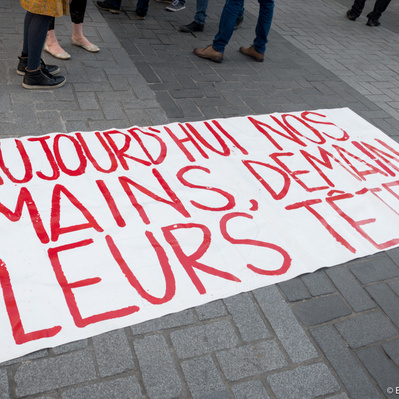 AUJOURD'HUI NOS
MAINS, DEMAIN
LEURS TÊTES
©